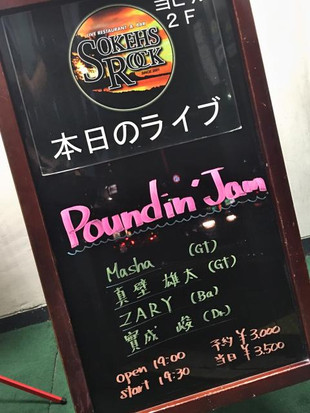 LIVE RESTAURANT & BAR
SOKEHS
ROCK
SINCE 2001
2F
本日のライブ
Poundin' Jam
Masha (Gt)
真壁 雄太 (Gt)
ZARY (Ba)
實成 峻 (Dr.)
open 19:00 予約 ¥3,000
start 19:30 当日 ¥3,500